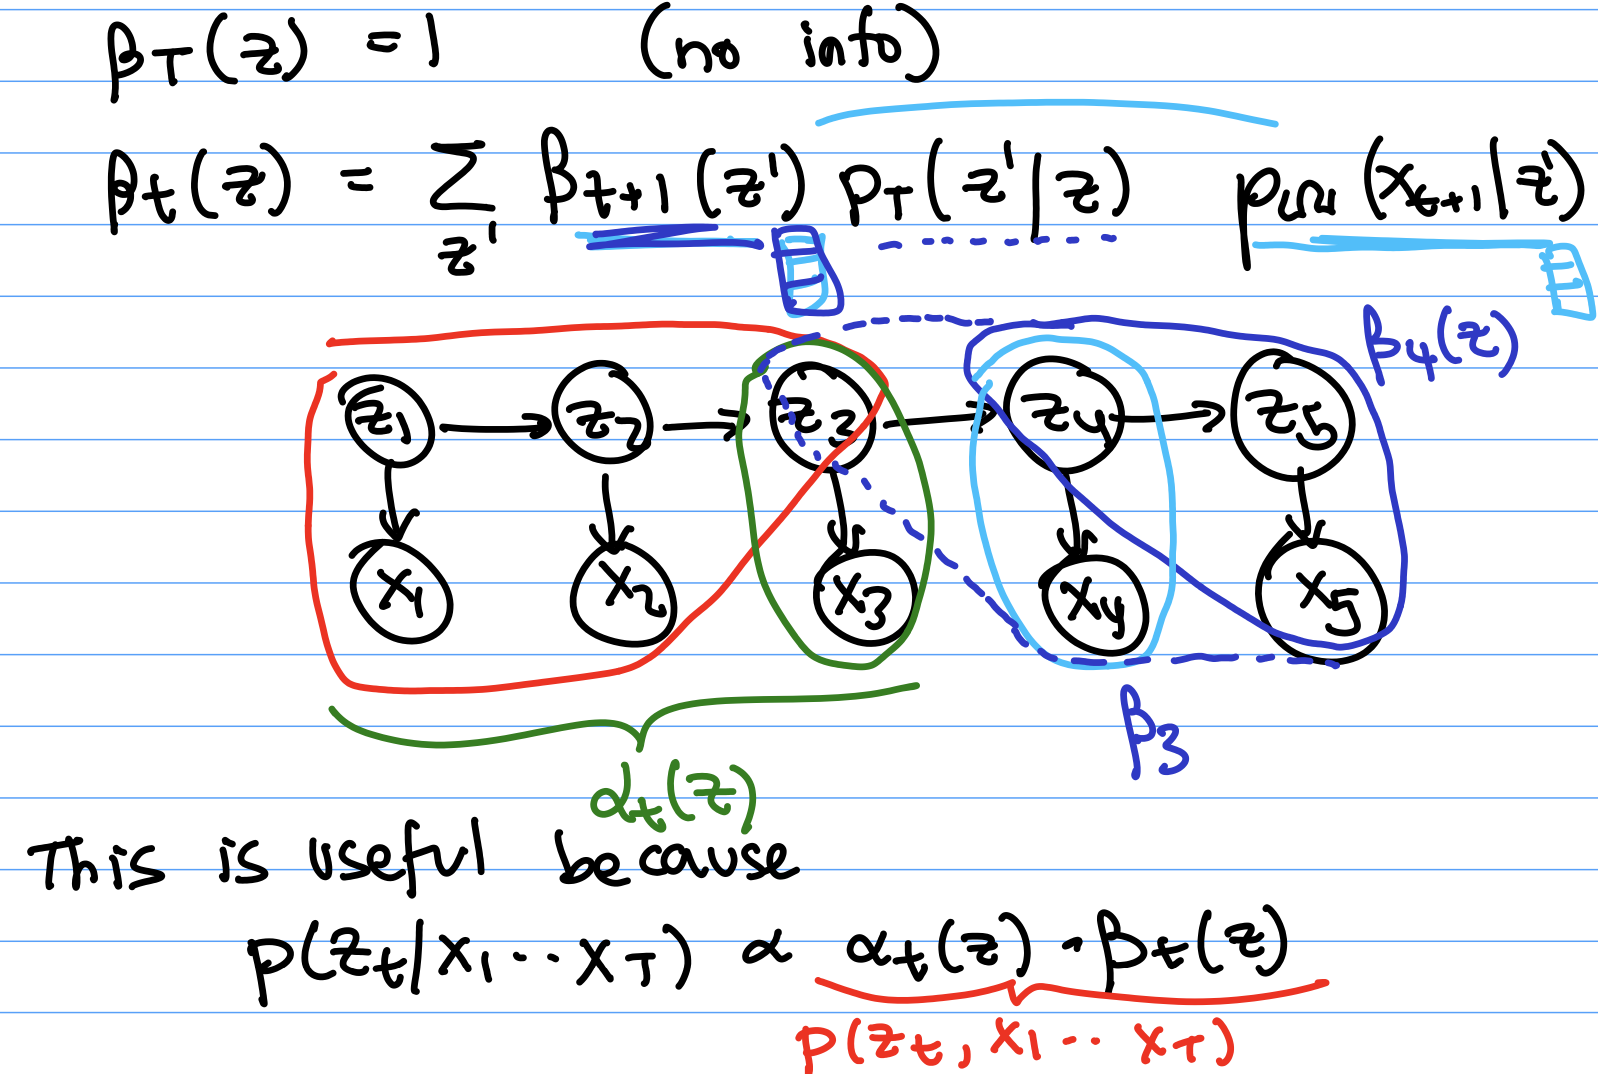 β_T(z) = 1 (no info)
β_t(z) = Σ_z' β_{t+1}(z') p_T(z'|z) p_{in}(x_{t+1}|z')
β_4(z)
z_1 z_2 z_3 z_4 z_5
x_1 x_2 x_3 x_4 x_5
β_3
α_t(z)
This is useful because
p(z_t|x_1 ... x_T) ∝ α_t(z) · β_t(z)
p(z_t, x_1 .. x_T)